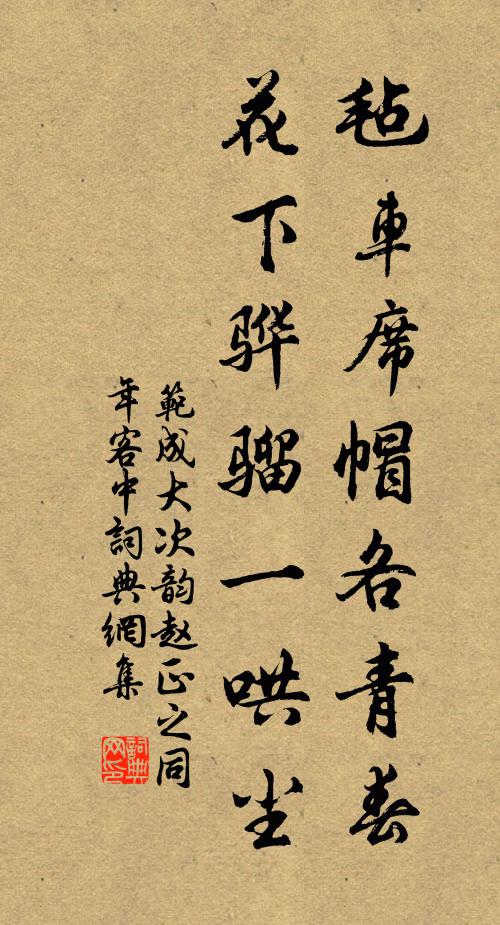 毡車席帽各青春
花下骅骝一哄尘
範成大次韵赵正之同
年客中詞典網集
詞典
网印